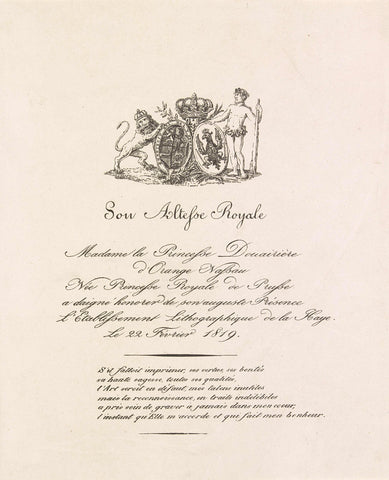 Son Altesse Royale
Madame la Princesse Douairière
d'Orange Nassau
Née Princesse Royale de Prusse
a daigné honorer de son auguste Présence
L'Etablissement Lithographique de la Haye.
Le 22 Février 1819.
S'il falloit imprimer, ses vertus, ses bontés
sa haute sagesse, toutes ses qualités,
l'Art seroit en défaut, mes talens inutiles
mais la reconnoissance, en traits indélébiles
a pris soin de graver à jamais dans mon coeur,
l'instant qu'Elle m'accorde et qui fait mon bonheur.